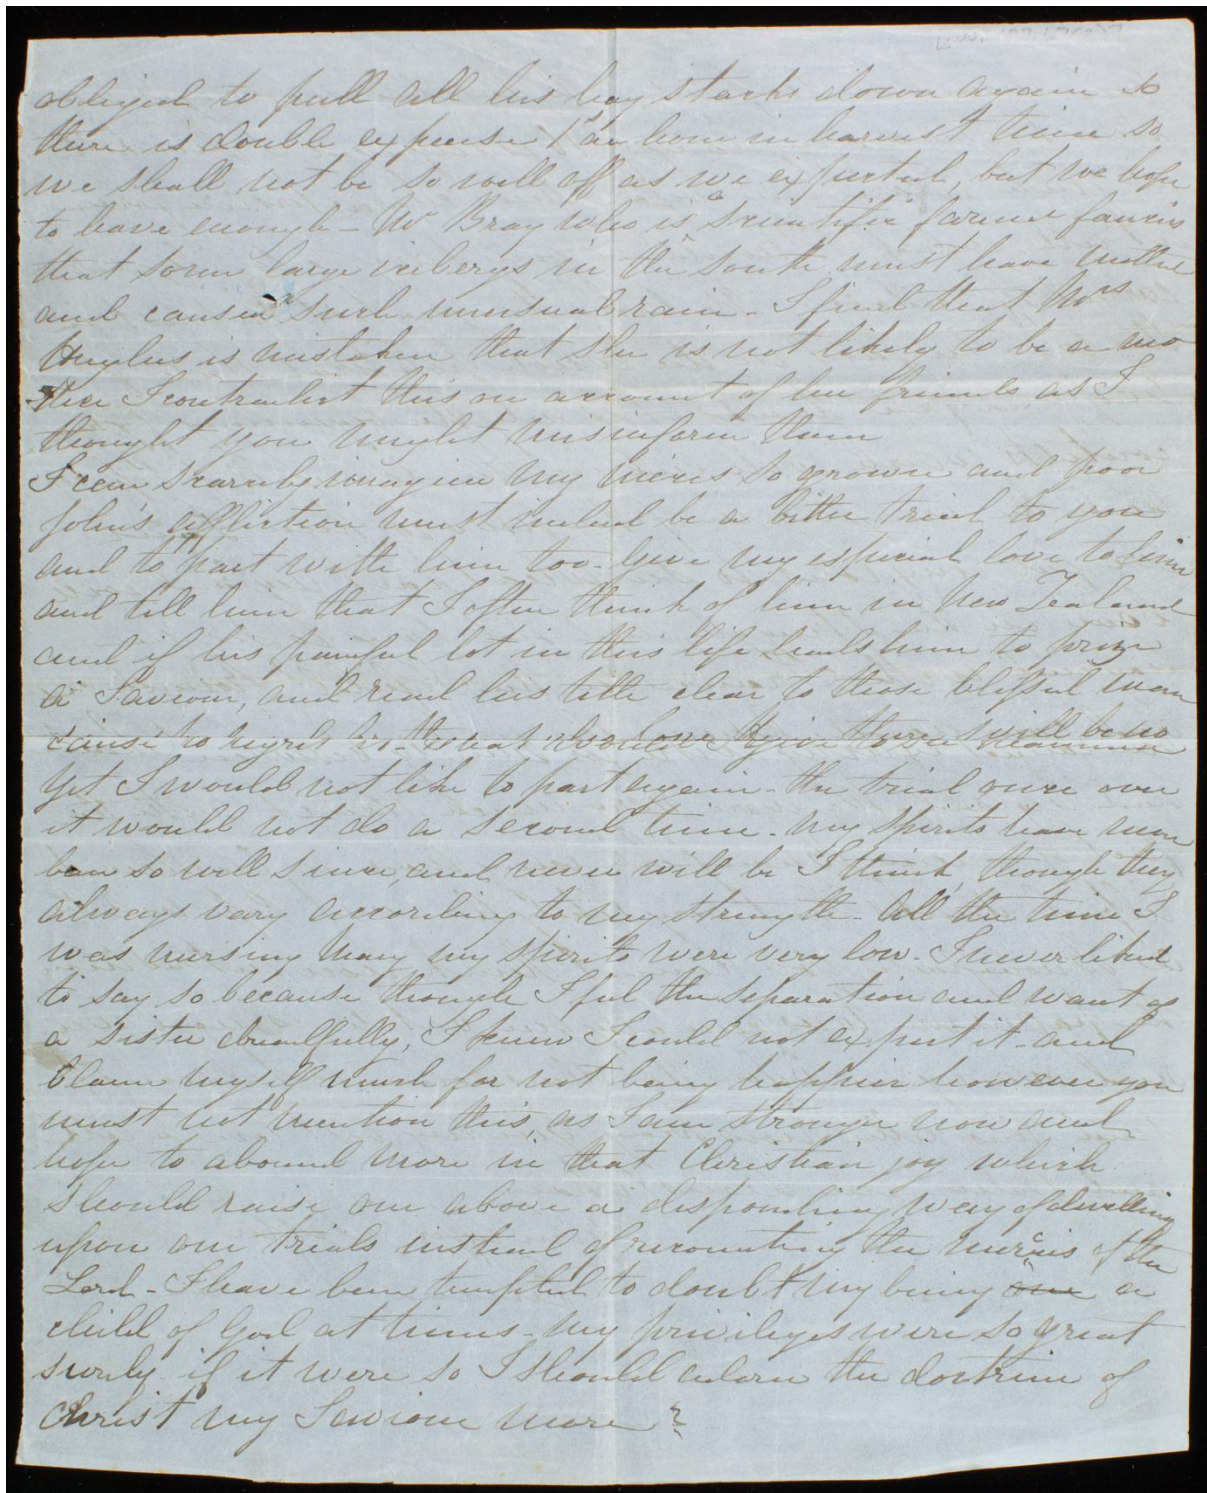 obliged to pull all his hay stacks down again so
there is double expense 1/ an hour in harvest time so
we shall not be so well off as we expected, but we hope
to have enough - Mr Bray who is a scientific farmer fancies
that some large icebergs in the South must have melted
and caused such unusual rain - I find that Mrs
is mistaken that she is not likely to be a mo
ther I contradict this on account of her friends as I
thought you might misinform them
I can scarcely imagine my nieces so grown and poor
John's affliction must indeed be a bitter trial to you
and to part with him too - Give my especial love to him
and tell him that I often think of him in New Zealand
and if his painful lot in this life leads him to prize
a Saviour, and read his title clear to those blissful man
cause to regret there will be no
Yet I would not like to part again - the trial once over
it would not do a second time - my spirits have never
been so well since, and never will be I think, though they
always vary according to my strength - All the time I
was nursing Mary my spirits were very low - I never liked
to say so because though I feel the separation and want of
a sister dreadfully, I knew I could not expect it - and
blame myself much for not being happier however you
must not mention this, as I am stronger now and
hope to abound more in that Christian joy which
should raise one above a desponding way of dwelling
upon our trials instead of recounting the mercies of the
Lord - I have been tempted to doubt my being one a
child of God at times - my privileges were so great
surely if it were so I should adorn the doctrine of
Christ my Saviour more?